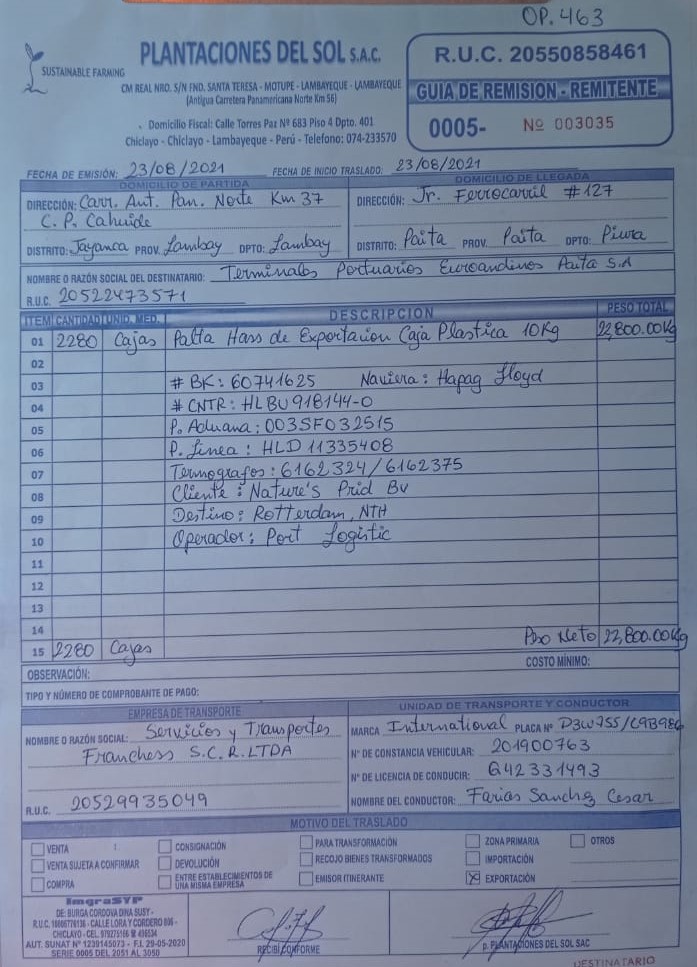 OP. 463
SUSTAINABLE FARMING
PLANTACIONES DEL SOL S.A.C.
CM REAL NRO. S/N FND. SANTA TERESA - MOTUPE - LAMBAYEQUE - LAMBAYEQUE
(Antigua Carretera Panamericana Norte Km 56)
Domicilio Fiscal: Calle Torres Paz Nº 683 Piso 4 Dpto. 401
Chiclayo - Chiclayo - Lambayeque - Perú - Telefono: 074-233570
R.U.C. 20550858461
GUIA DE REMISION - REMITENTE
0005- Nº 003035
FECHA DE EMISIÓN: 23/08/2021 FECHA DE INICIO TRASLADO: 23/08/2021
DOMICILIO DE PARTIDA
DIRECCIÓN: Carr. Ant. Pan. Norte Km 37
C.P. Cahuide
DISTRITO: Jayanca PROV. Lambay DPTO: Lambay
DOMICILIO DE LLEGADA
DIRECCIÓN: Jr. Ferrocarril #127
DISTRITO: Paita PROV. Paita DPTO: Piura
NOMBRE O RAZÓN SOCIAL DEL DESTINATARIO: Terminales Portuarios Euroandinos Paita S.A
R.U.C. 20522473571
ITEM CANTIDAD UNID. MED. DESCRIPCION PESO TOTAL
01 2280 Cajas Palta Hass de Exportacion Caja Plastica 10Kg 22,800.00Kg
02
03 # BK: 60741625 Naviera: Hapag Lloyd
04 # CNTR: HLBU918144-0
05 P. Aduana: 003SF032515
06 P. Linea: HLD 11335408
07 Termografos: 6162324/6162375
08 Cliente: Nature's Prid BV
09 Destino: Rotterdam, NTH
10 Operador: Port Logistic
11
12
13
14
15 2280 Cajas Peso Neto 22,800.00Kg
OBSERVACIÓN: COSTO MÍNIMO:
TIPO Y NÚMERO DE COMPROBANTE DE PAGO:
EMPRESA DE TRANSPORTE
NOMBRE O RAZÓN SOCIAL: Servicios y Transportes
Franchess S.C.R.LTDA
R.U.C. 20529935049
UNIDAD DE TRANSPORTE Y CONDUCTOR
MARCA International PLACA Nº D3W755/C9B986
Nº DE CONSTANCIA VEHICULAR: 201900763
Nº DE LICENCIA DE CONDUCIR: Q42331493
NOMBRE DEL CONDUCTOR: Farias Sanchez Cesar
MOTIVO DEL TRASLADO
VENTA CONSIGNACIÓN PARA TRANSFORMACIÓN ZONA PRIMARIA OTROS
VENTA SUJETA A CONFIRMAR DEVOLUCIÓN RECOJO BIENES TRANSFORMADOS IMPORTACIÓN
COMPRA ENTRE ESTABLECIMIENTOS DE UNA MISMA EMPRESA EMISOR ITINERANTE X EXPORTACIÓN
ImgraSYP
DE: BURGA CORDOVA DINA SUSY -
CALLE LORA Y CORDERO
CHICLAYO -
AUT. SUNAT Nº 1239145073 - F.I. 29-05-2020
SERIE 0005 DEL 2051 AL 3050
RECIBI CONFORME
p. PLANTACIONES DEL SOL SAC
DESTINATARIO